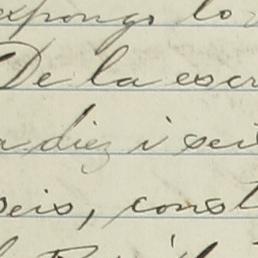 expongo lo
De la escr
a diez i seis
seis, const